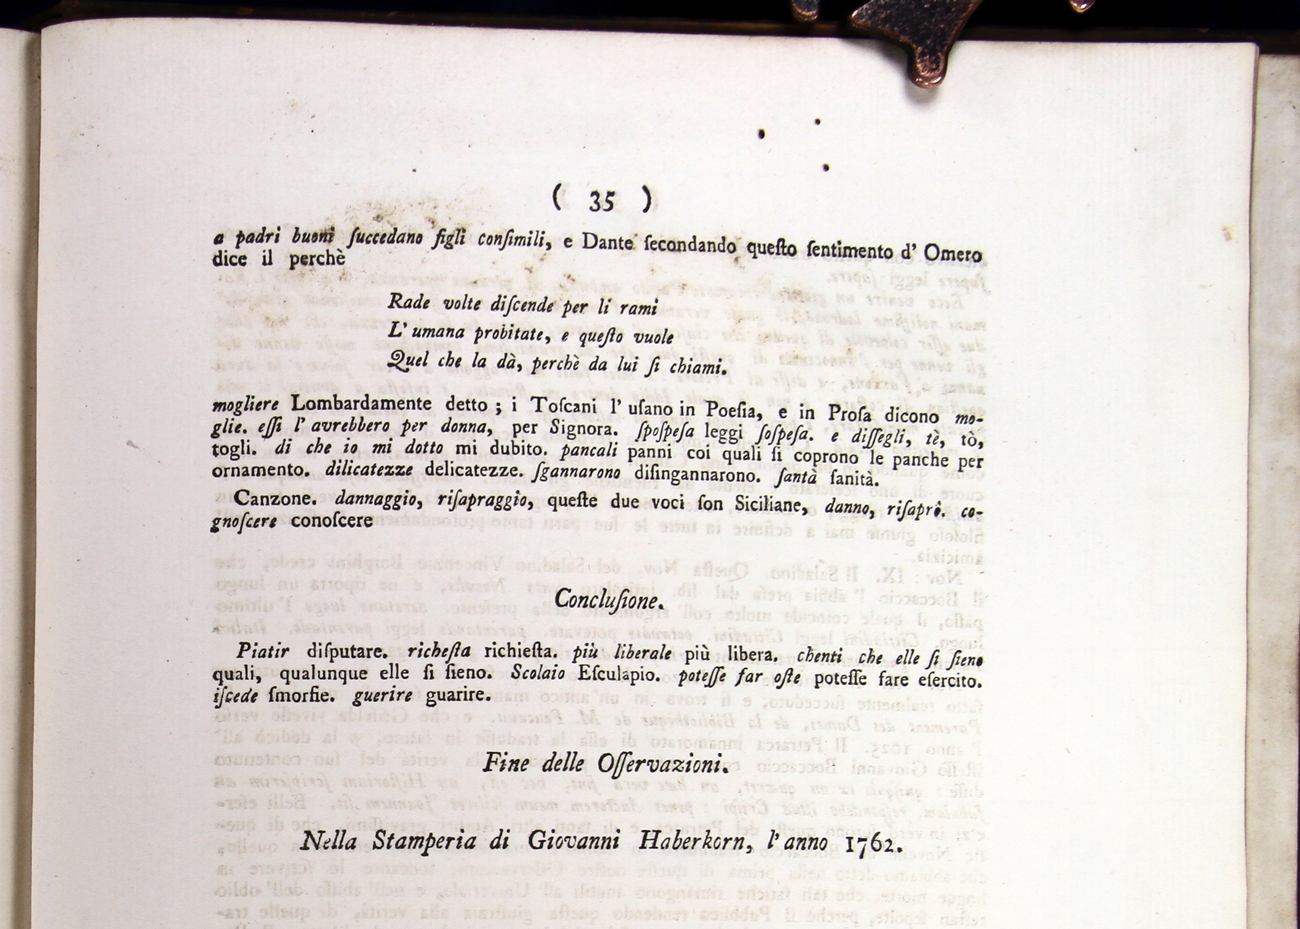 ( 35 )
a padri buoni ſuccedano figli conſimili, e Dante ſecondando queſto ſentimento d' Omero
dice il perchè
Rade volte diſcende per li rami
L' umana probitate, e queſto vuole
Quel che la dà, perchè da lui ſi chiami.
mogliere Lombardamente detto ; i Toſcani l' uſano in Poeſia, e in Proſa dicono mo-
glie. eſſi l' avrebbero per donna, per Signora. ſpoſpeſa leggi ſoſpeſa. e diſſegli, tè, tò,
togli. di che io mi dotto mi dubito. pancali panni coi quali ſi coprono le panche per
ornamento. dilicatezze delicatezze. ſgannarono diſingannarono. ſantà ſanità.
Canzone. dannaggio, riſapraggio, queſte due voci ſon Siciliane, danno, riſaprò. co-
gnoſcere conoſcere
Concluſione.
Piatir diſputare. richeſta richieſta. più liberale più libera. chenti che elle ſi ſieno
quali, qualunque elle ſi ſieno. Scolaio Eſculapio. poteſſe far oſte poteſſe fare eſercito.
iſcede ſmorfie. guerire guarire.
Fine delle Oſſervazioni.
Nella Stamperia di Giovanni Haberkorn, l' anno 1762.